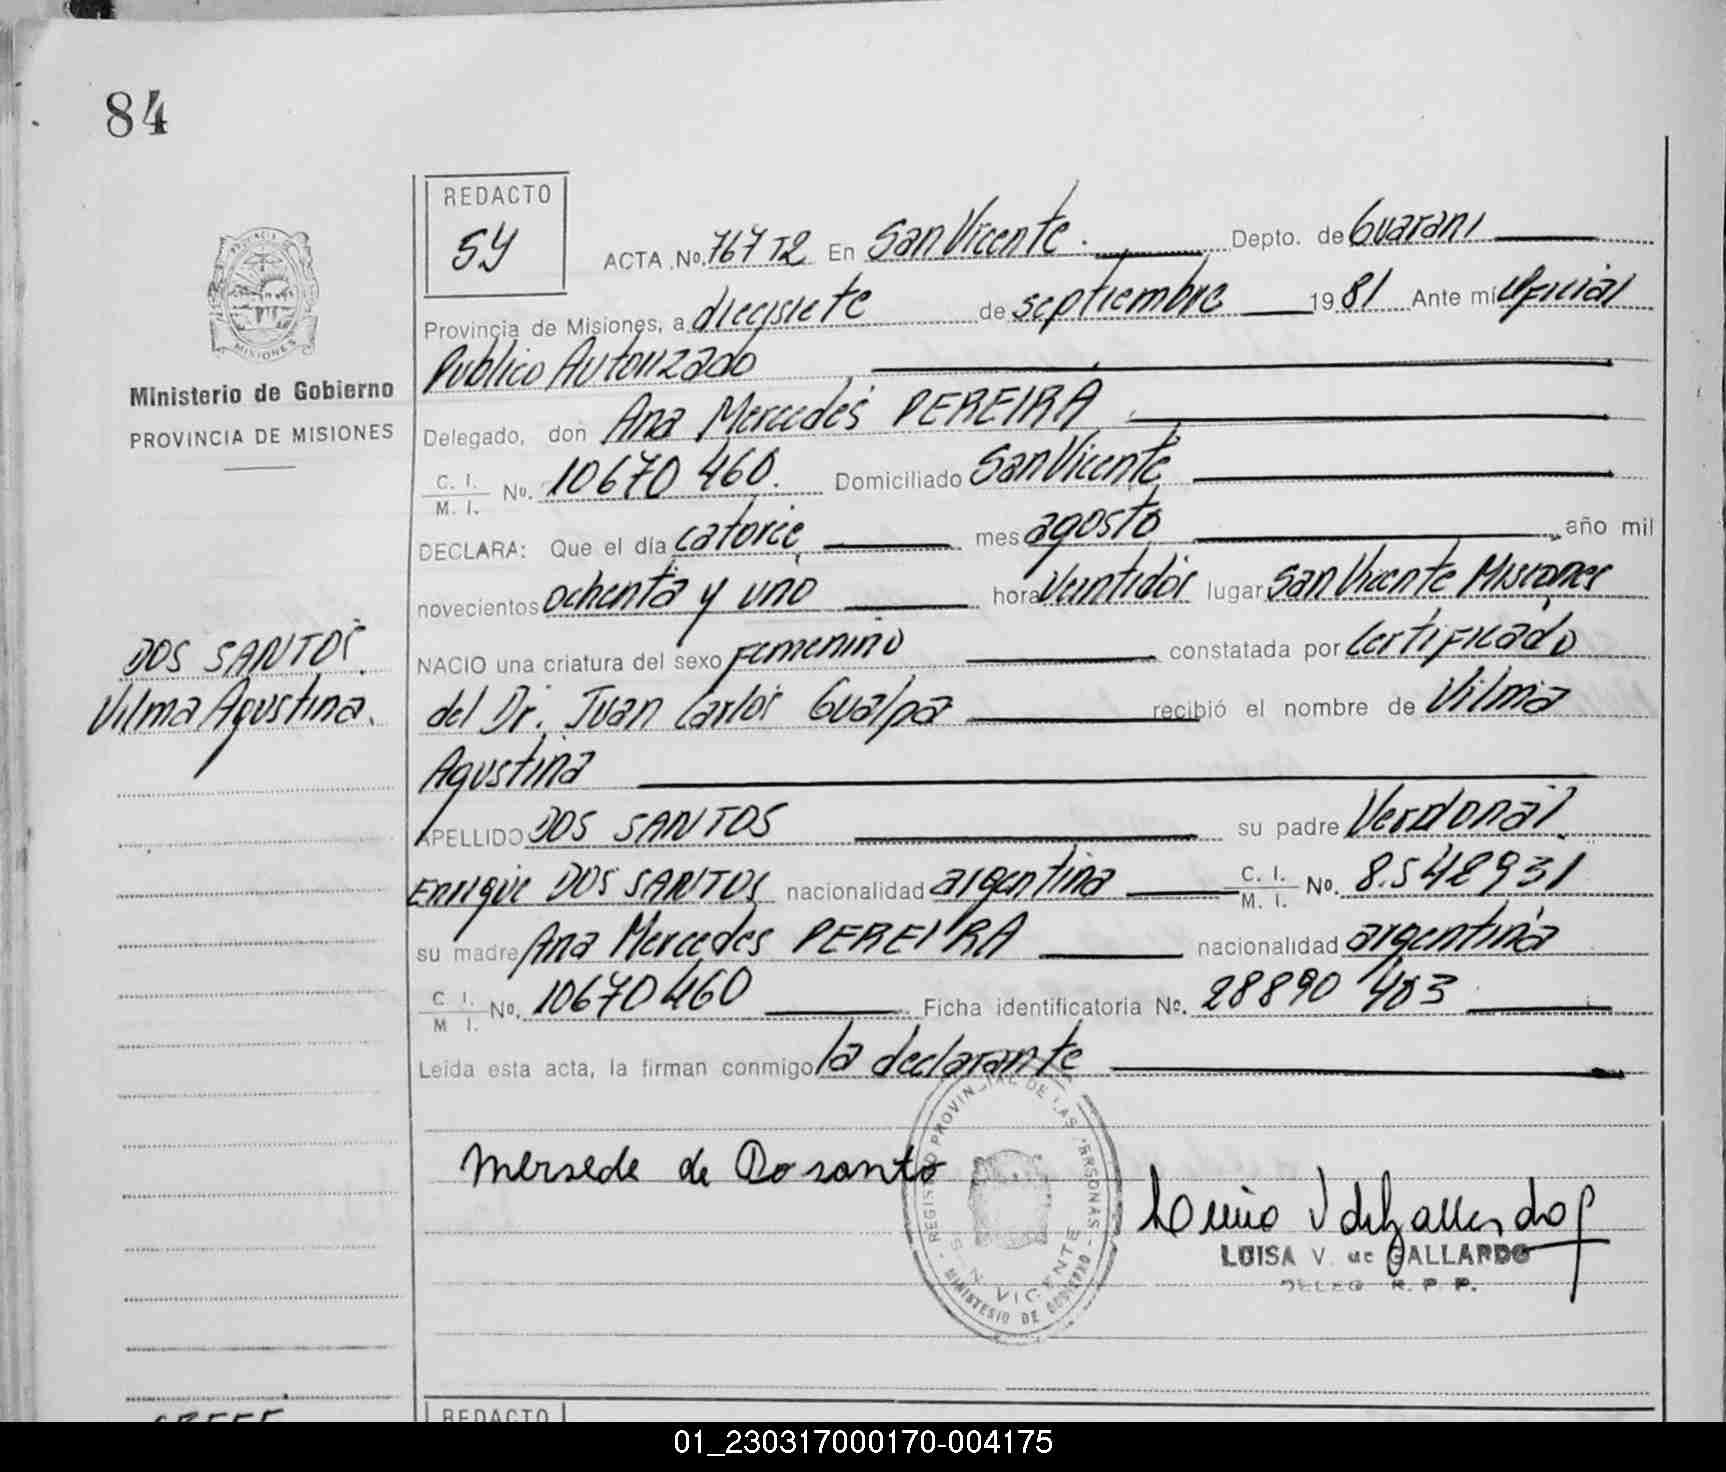 84
REDACTO
SY
ACTA No. 767 T2 En San Vicente. Depto. de Guarani
Provincia de Misiones, a diecisiete de septiembre 1981 Ante mí Oficial
Publico Autorizado
MISIONES
Ministerio de Gobierno
PROVINCIA DE MISIONES
Delegado, don Ana Mercedes PEREIRA
C. I. M. I. No. 10670 460. Domiciliado San Vicente
DECLARA: Que el día catorce mes agosto año mil
novecientos ochenta y uno hora Veintidós lugar San Vicente Misiones
DOS SANTOS.
Vilma Agustina.
NACIO una criatura del sexo Femenino constatada por Certificado
del Dr. Juan Carlos Gualpa recibió el nombre de Vilma
Agustina
APELLIDO DOS SANTOS su padre
Enrique DOS SANTOS nacionalidad argentina C. I. M. I. No. 8.548931
su madre Ana Mercedes PEREIRA nacionalidad argentina
C. I. M. I. No. 10670460 Ficha identificatoria No. 28890 403
Leída esta acta, la firman conmigo la declarante
REGISTRO PROVINCIAL DE LAS PERSONAS
S. N VICENTE
MINISTERIO DE GOBIERNO
Mersede de Dosanto
LUISA V. de GALLARDO
DELEG R. P. P.
REDACTO
01_230317000170-004175